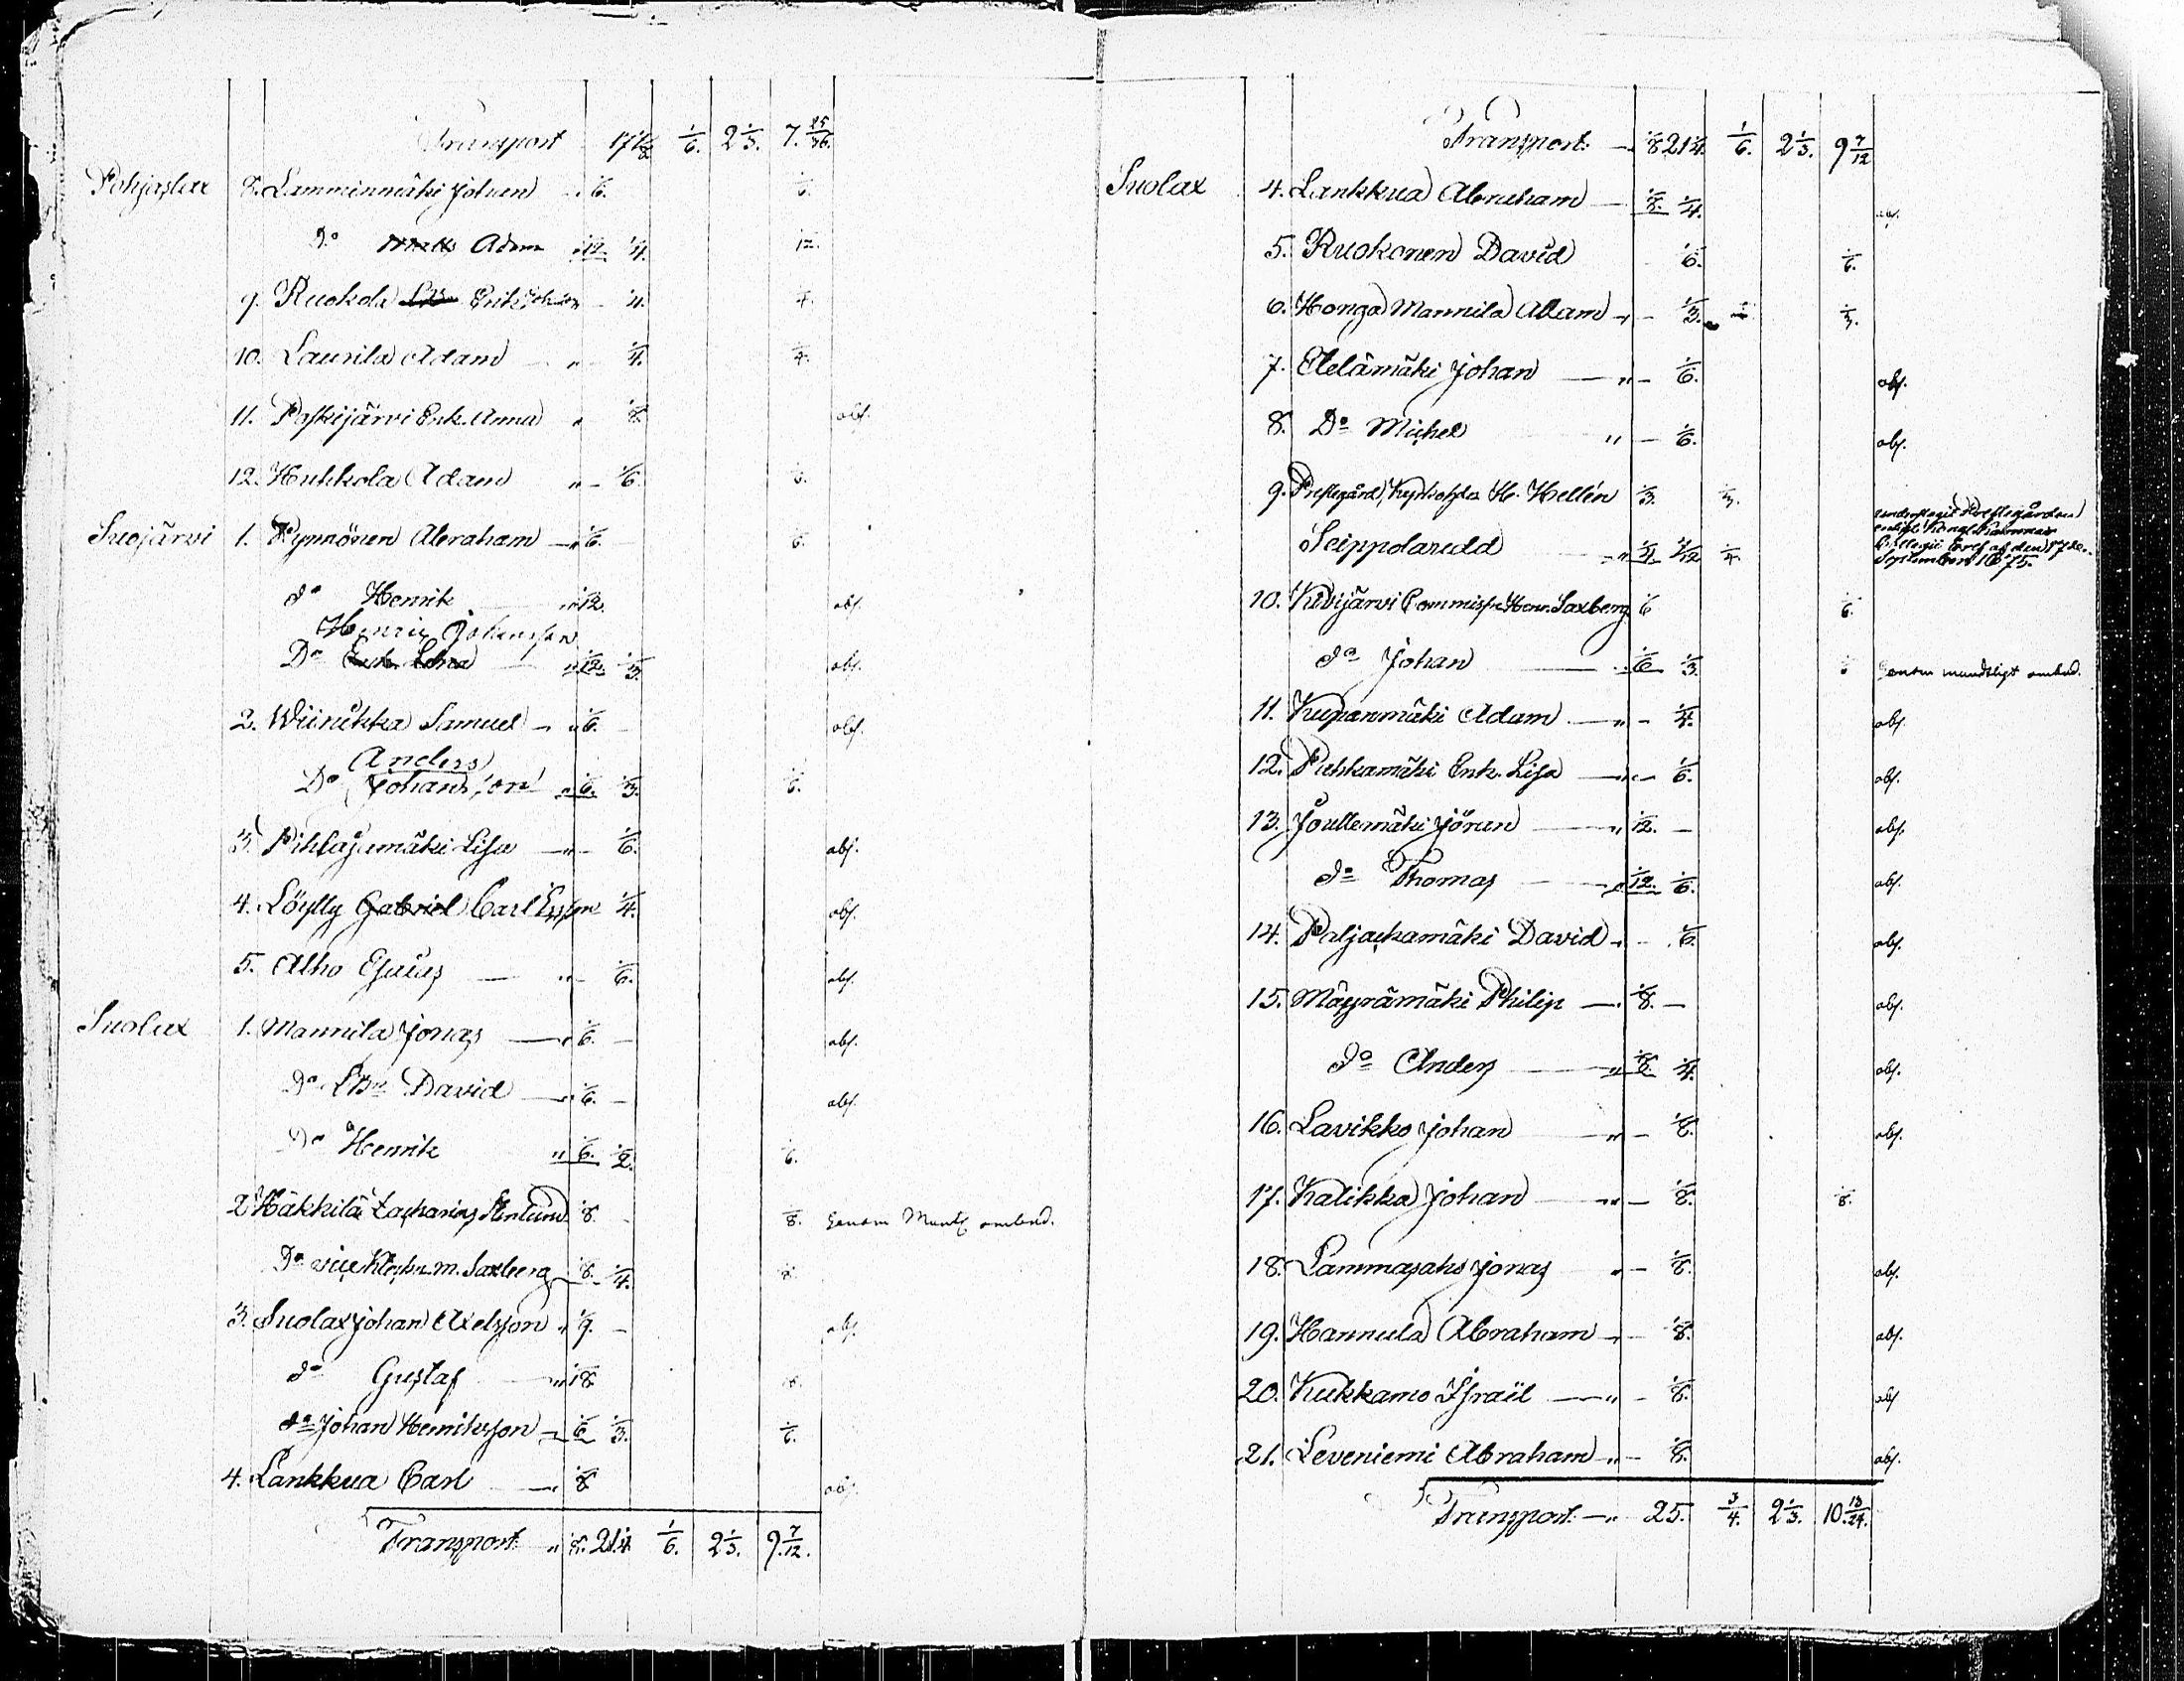 Transport 17 1/8 1/6. 2 1/3. 7. 25/36.
Pohjaslax 8. Lamminmäki Johan 1/6. 1/6.
Do Matts Adam 1/12 1/4. 1/12.
9. Ruokola Erik 1/4. 1/4.
10. Laurila Adam 1/4. 1/4.
11. Paskijärvi Enk. Anna 1/8. abs.
12. Huhkola Adam 1/6. 1/6.
Suojärvi 1. Pynnönen Abraham 1/6. 1/6.
do Henrik 1/12. abs.
Henric Johansson
Do Enk. Lena 1/12. 1/3. abs.
2. Wiinikka Samuel 1/6. abs.
Anders
Do Johans'on' 1/6. 1/3. 1/6.
3. Pihlajamäki Lisa 1/6. abs.
4. Löylly Gabriel Carl 1/4. abs.
5. Alho Esaias 1/6. abs.
Suolax 1. Mannila Jonas 1/6. abs.
Do David 1/6. abs.
Do Henrik 1/6. 1/2. 1/6.
2. Häkkilä Zacharias Stenlund 1/8. 1/8. Genom Muntl ombud.
Do M. Saxberg 1/8. 1/4. 1/8.
3. Suolax Johan Axelsson 1/9. abs.
do Gustaf 1/18 1/18.
do Johan Henriksson 1/6 1/3. 1/6.
4. Lankkua Carl 1/8 abs.
Transport 1/8. 21 1/4. 1/6. 2 1/3. 9. 7/12.
Transport 1/8 21 1/4. 1/6. 2 1/3. 9 7/12
Suolax 4. Lankkua Abraham 1/8. 1/4. abs.
5. Ruokonen David 1/6. 1/6.
6. Honga Mannila Adam 1/3. 1/3.
7. Etelämäki Johan 1/6. abs.
8. Do Michel 1/6. abs.
9. Prestgård, Kyrkoh H. Hellén 1/3. 1/3.
Seippolaredd 1/4 7/12 1/4.
underslagit Prestegården
enligt Kongl Kammar
Collegii bref af den 17 de
September 1675.
10. Kivijärvi Commiss Henr. Saxberg 1/6 1/6.
do Johan 1/6 1/3. 1/6 Genom mundtligt ombud.
11. Kupanmäki Adam 1/4. abs.
12. Puhkamäki Enk. Lisa 1/6. abs.
13. Joullemäki Jöran 1/12. abs.
do Thomas 1/12. 1/6. abs.
14. Paljachamäki David 1/6. abs.
15. Mäyrämäki Philip 1/8. abs.
do Anders 1/8. 1/4. abs.
16. Lavikko Johan 1/8. abs.
17. Kalikka Johan 1/8. 1/8.
18. Lammasaho Jonas 1/8. abs.
19. Hannula Abraham 1/8. abs.
20. Kukkamo Israël 1/8. abs
21. Leveniemi Abraham 1/8. abs.
Transport 25. 3/4. 2 1/3. 10 13/24.